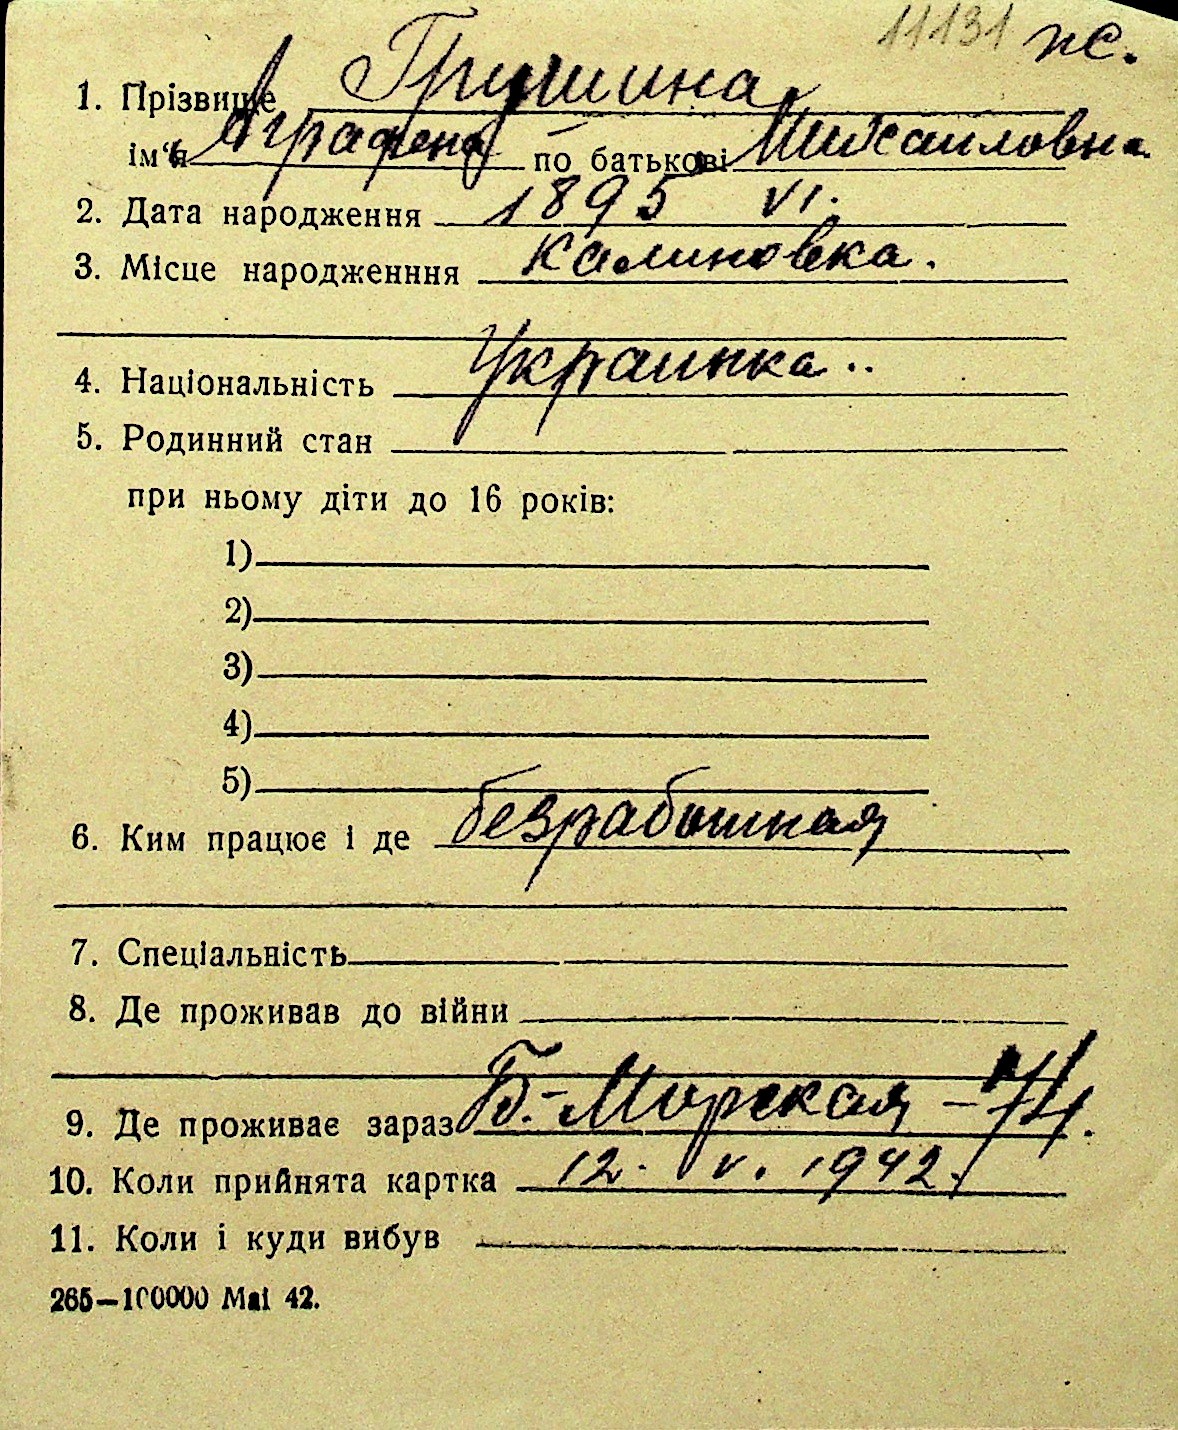 11131 ж.
1. Прізвище Гришина
ім'я Аграфена по батькові Михайловна
2. Дата народження 1895 VI.
3. Місце народженння Калиновка.
4. Національність Украинка..
5. Родинний стан
при ньому діти до 16 років:
1)
2)
3)
4)
5)
6. Ким працює і де безработная
7. Спеціальність
8. Де проживав до війни
9. Де проживає зараз Б.-Морская - 74.
10. Коли прийнята картка 12. V. 1942.
11. Коли і куди вибув
265—100000 Маі 42.